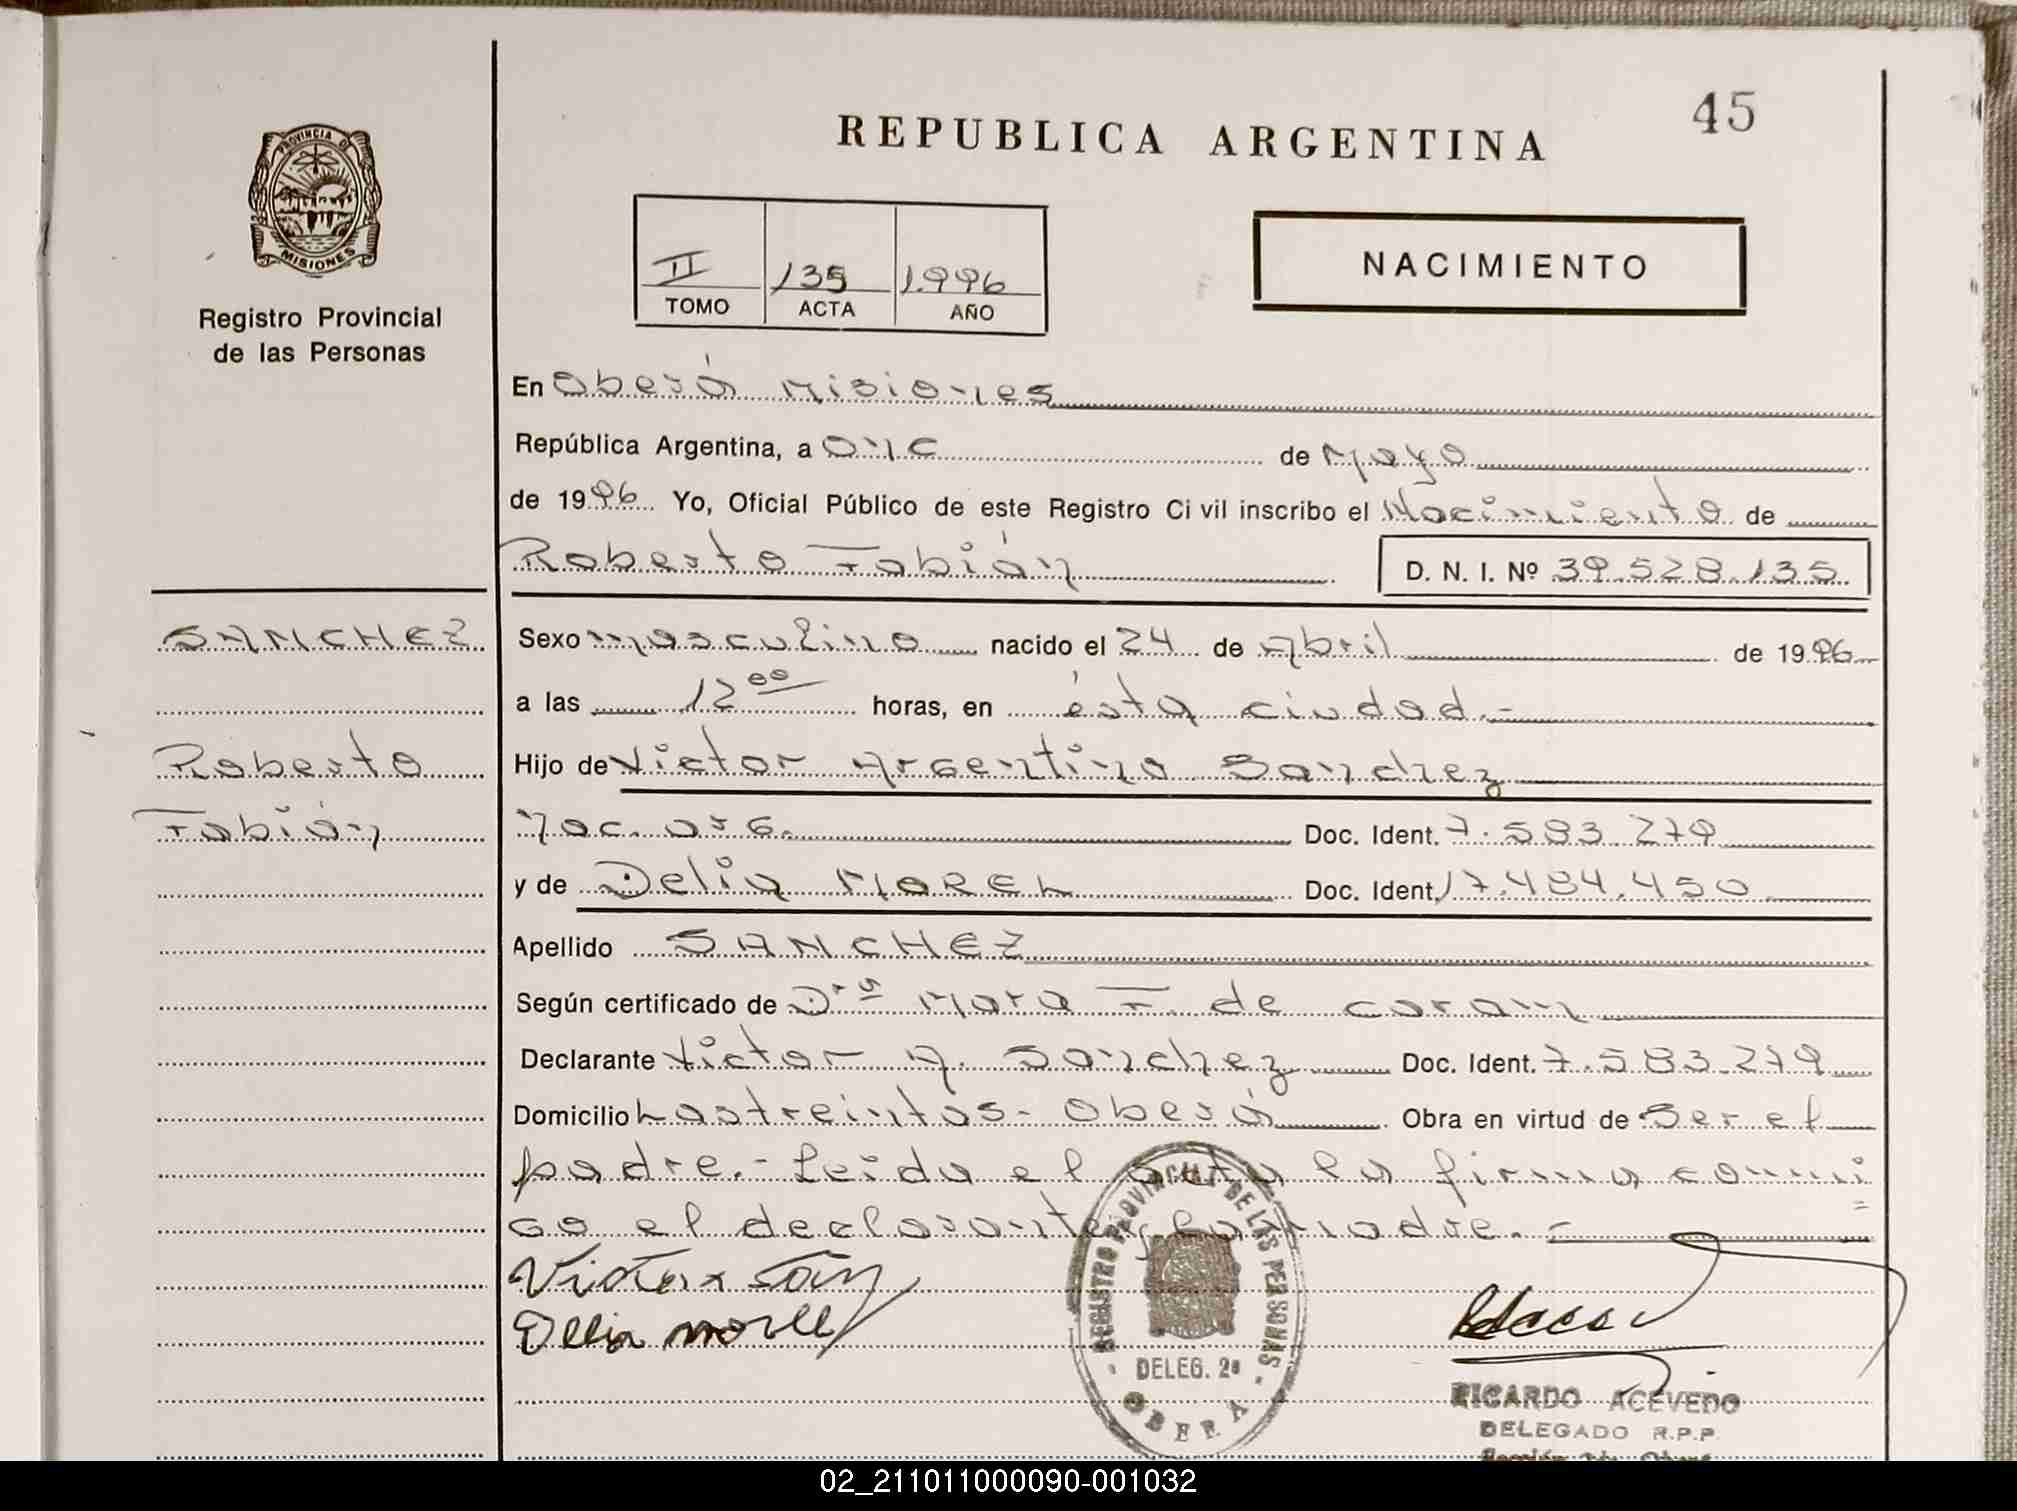 45
REPUBLICA ARGENTINA
PROVINCIA DE
MISIONES
Registro Provincial
de las Personas
II 135 1.996
TOMO ACTA AÑO
NACIMIENTO
En Oberá Misiones
República Argentina, a once de Mayo
de 1996 Yo, Oficial Público de este Registro Ci vil inscribo el Nacimiento de
Roberto Fabián D. N. I. Nº 39.528.135.
SANCHEZ
Sexo masculino nacido el 24 de Abril de 1996
a las 12 00 horas, en ésta ciudad.-
Roberto
Hijo de Victor Argentino Sanchez
Fabián
nac. arg. Doc. Ident. 7.583.279
y de Delia MOREL Doc. Ident. 17.484.450
Apellido SANCHEZ
Según certificado de Dra Mara F. de Coram
Declarante Victor A. Sanchez Doc. Ident. 7.583.279
Domicilio Lastreintas - Oberá Obra en virtud de Ser el
padre.- Leida el acta la firma conmi
go el declarante y la madre. -
Delia
REGISTRO PROVINCIAL DE LAS PERSONAS
- DELEG. 2a -
OBERA
RICARDO ACEVEDO
DELEGADO R.P.P.
02_211011000090-001032